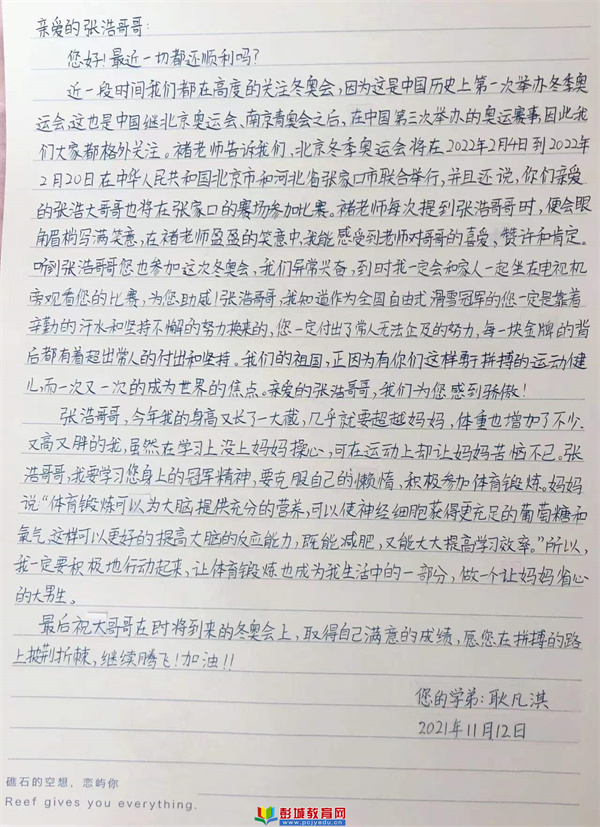 亲爱的张浩哥哥：
您好！最近一切都还顺利吗？
近一段时间我们都在高度的关注冬奥会，因为这是中国历史上第一次举办冬季奥
运会，这也是中国继北京奥运会、南京青奥会之后，在中国第三次举办的奥运赛事，因此我
们大家都格外关注。褚老师告诉我们，北京冬季奥运会将在2022年2月4日到2022年
2月20日在中华人民共和国北京市和河北省张家口市联合举行，并且还说，你们亲爱
的张浩大哥哥也将在张家口的赛场参加比赛。褚老师每次提到张浩哥哥时，便会眼
角眉梢写满笑意，在褚老师盈盈的笑意中，我能感受到老师对哥哥的喜爱、赞许和肯定。
听到张浩哥哥您也参加这次冬奥会，我们异常兴奋，到时我一定会和家人一起坐在电视机
旁观看您的比赛，为您助威！张浩哥哥，我知道作为全国自由式滑雪冠军的您一定是靠着
辛勤的汗水和坚持不懈的努力换来的，您一定付出了常人无法企及的努力，每一块金牌的背
后都有着超出常人的付出和坚持。我们的祖国，正因为有你们这样勇于拼搏的运动健
儿，而一次又一次的成为世界的焦点。亲爱的张浩哥哥，我们为您感到骄傲！
张浩哥哥，今年我的身高又长了一大截，几乎就要超越妈妈，体重也增加了不少．
又高又胖的我，虽然在学习上没上妈妈操心，可在运动上却让妈妈苦恼不已。张
浩哥哥，我要学习您身上的冠军精神，要克服自己的懒惰、积极参加体育锻炼。妈妈
说“体育锻炼可以为大脑提供充分的营养，可以使神经细胞获得更充足的葡萄糖和
氧气，这样可以更好的提高大脑的反应能力，既能减肥，又能大大提高学习效率。”所以，
我一定要积极地行动起来，让体育锻炼也成为我生活中的一部分，做一个让妈妈省心
的大男生。
最后祝大哥哥在即将到来的冬奥会上，取得自己满意的成绩，愿您在拼搏的路
上披荆折棘，继续腾飞！加油！！
您的学弟：耿凡淇
2021年11月12日
礁石的空想，恋屿你
Reef gives you everything.
彭城教育网
www.pcjyedu.cn